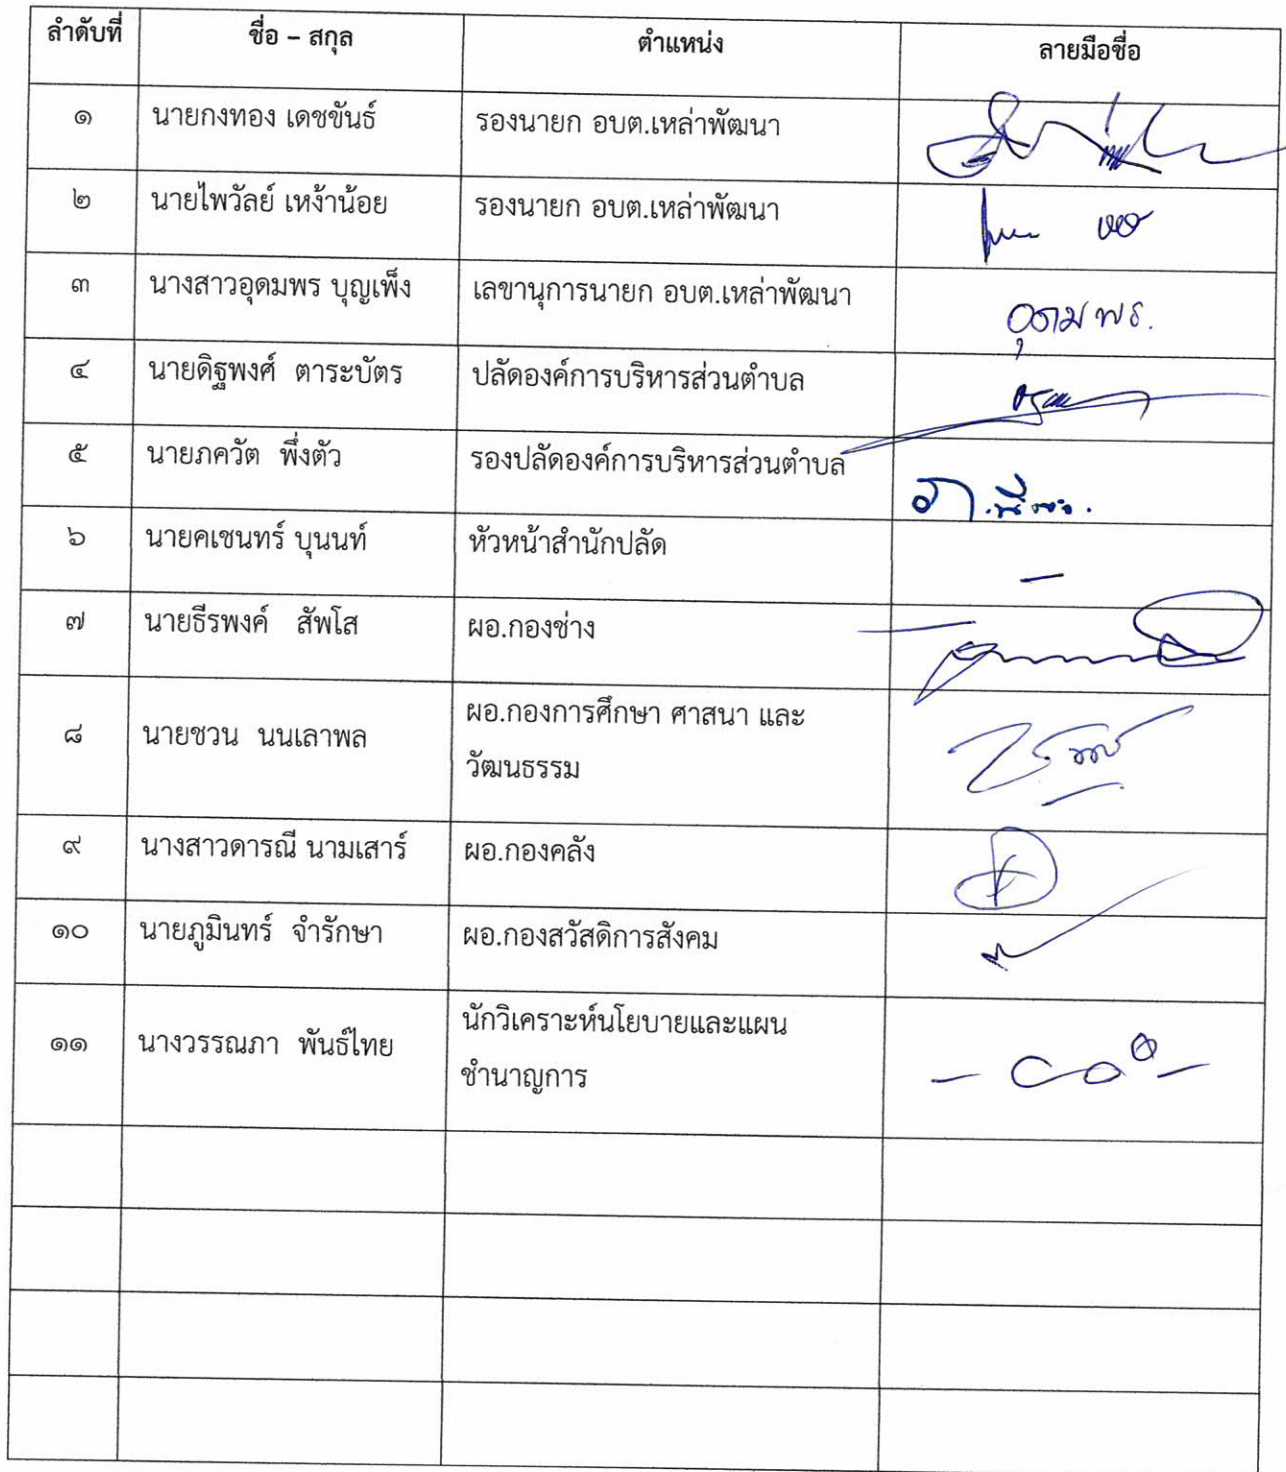 ลำดับที่ ชื่อ – สกุล ตำแหน่ง ลายมือชื่อ
๑ นายกงทอง เดชขันธ์ รองนายก อบต.เหล่าพัฒนา
๒ นายไพวัลย์ เหง้าน้อย รองนายก อบต.เหล่าพัฒนา
๓ นางสาวอุดมพร บุญเพ็ง เลขานุการนายก อบต.เหล่าพัฒนา อุดมพร.
๔ นายดิฐพงศ์ ตาระบัตร ปลัดองค์การบริหารส่วนตำบล
๕ นายภควัต พึ่งตัว รองปลัดองค์การบริหารส่วนตำบล
๖ นายคเชนทร์ บุนนท์ หัวหน้าสำนักปลัด –
๗ นายธีรพงค์ สัพโส ผอ.กองช่าง
๘ นายชวน นนเลาพล ผอ.กองการศึกษา ศาสนา และ
วัฒนธรรม
๙ นางสาวดารณี นามเสาร์ ผอ.กองคลัง
๑๐ นายภูมินทร์ จำรักษา ผอ.กองสวัสดิการสังคม
๑๑ นางวรรณภา พันธ์ไทย นักวิเคราะห์นโยบายและแผน
ชำนาญการ